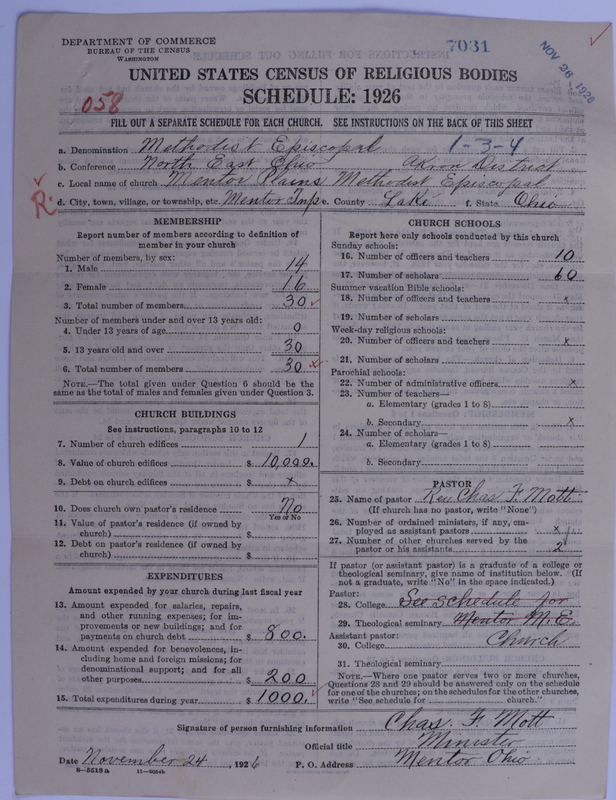 DEPARTMENT OF COMMERCE
BUREAU OF THE CENSUS
WASHINGTON
7031
NOV 26 1926
UNITED STATES CENSUS OF RELIGIOUS BODIES
SCHEDULE: 1926
058
FILL OUT A SEPARATE SCHEDULE FOR EACH CHURCH. SEE INSTRUCTIONS ON THE BACK OF THIS SHEET
a. Denomination Methodist Episcopal 1-3-4
b. Conference North East Ohio Akron District
c. Local name of church Mentor Plains Methodist Episcopal
R. d. City, town, village, or township, etc. Mentor Tmp e. County Lake f. State Ohio
MEMBERSHIP
Report number of members according to definition of
member in your church
Number of members, by sex:
1. Male 14
2. Female 16
3. Total number of members 30
Number of members under and over 13 years old:
4. Under 13 years of age 0
5. 13 years old and over 30
6. Total number of members 30
NOTE.—The total given under Question 6 should be the
same as the total of males and females given under Question 3.
CHURCH BUILDINGS
See instructions, paragraphs 10 to 12
7. Number of church edifices 1
8. Value of church edifices $ 10,000.
9. Debt on church edifices $ x
10. Does church own pastor's residence No
Yes or No
11. Value of pastor's residence (if owned by
church) $
12. Debt on pastor's residence (if owned by
church) $
EXPENDITURES
Amount expended by your church during last fiscal year
13. Amount expended for salaries, repairs,
and other running expenses; for im-
provements or new buildings; and for
payments on church debt $ 800.
14. Amount expended for benevolences, in-
cluding home and foreign missions; for
denominational support; and for all
other purposes $ 200
15. Total expenditures during year $ 1000.
CHURCH SCHOOLS
Report here only schools conducted by this church
Sunday schools:
16. Number of officers and teachers 10
17. Number of scholars 60
Summer vacation Bible schools:
18. Number of officers and teachers x
19. Number of scholars
Week-day religious schools:
20. Number of officers and teachers x
21. Number of scholars
Parochial schools:
22. Number of administrative officers x
23. Number of teachers—
a. Elementary (grades 1 to 8)
b. Secondary x
24. Number of scholars—
a. Elementary (grades 1 to 8)
b. Secondary
PASTOR
25. Name of pastor Rev. Chas. F. Mott
(If church has no pastor, write "None")
26. Number of ordained ministers, if any, em-
ployed as assistant pastors x
27. Number of other churches served by the
pastor or his assistants 2
If pastor (or assistant pastor) is a graduate of a college or
theological seminary, give name of institution below. (If
not a graduate, write "No" in the space indicated.)
Pastor:
28. College See schedule for
29. Theological seminary Mentor M.E.
Assistant pastor:
30. College Church
31. Theological seminary
NOTE.—Where one pastor serves two or more churches,
Questions 28 and 29 should be answered only on the schedule
for one of the churches; on the schedules for the other churches,
write "See schedule for church."
Signature of person furnishing information Chas. F. Mott
Official title Minister
Date November 24, 1926 P. O. Address Mentor Ohio
8—5518a 11—9064b